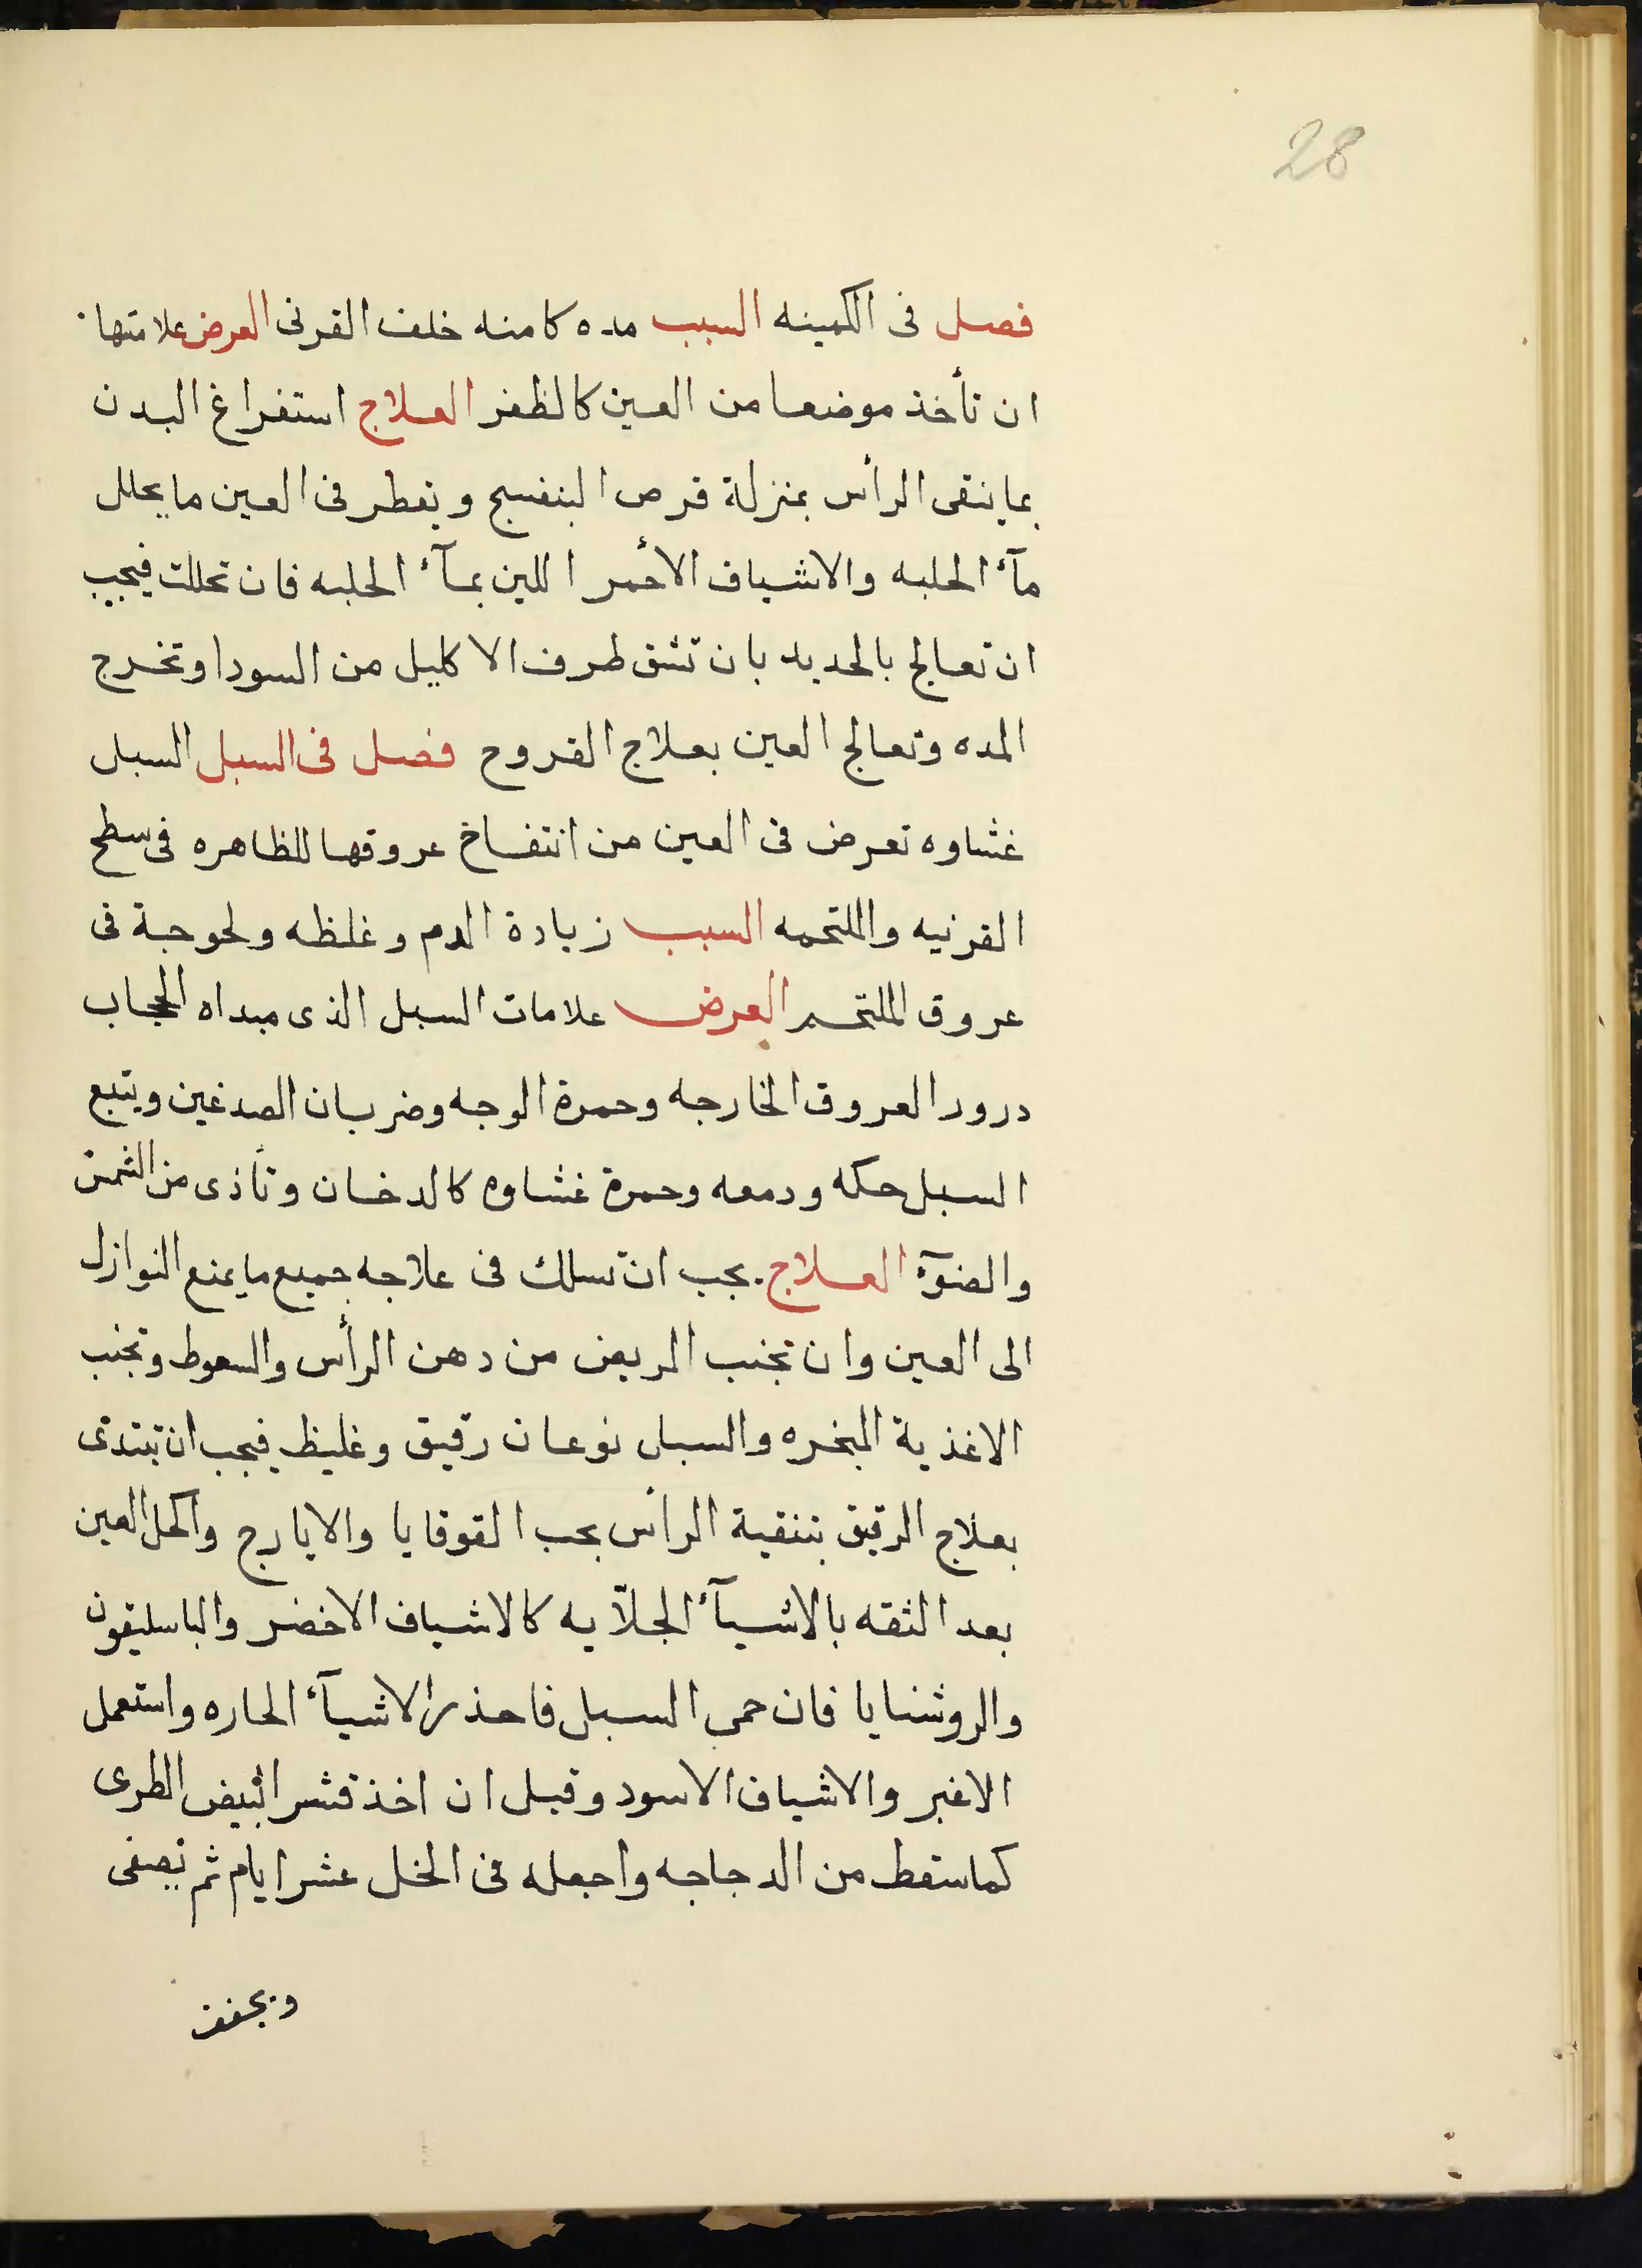 28
فصل فى الكمينه السبب مده كامنه خلف القرنى العرض علامتها
ان تأخذ موضعا من العين كالظفر العلاج استفراغ البدن
بما ينقى الرأس بمنزلة قرص البنفسج ويقطر فى العين ما يحلل
مآء الحلبه والاشياف الأحمر اللين بمآء الحلبه فان تحللت فيجب
ان تعالج بالحديد بان تشق طرف الاكليل من السودا وتخرج
المده وتعالج العين بعلاج القروح فصل فى السبل السبل
غشاوه تعرض فى العين من انتفاخ عروقها للظاهره فى سطح
القرنيه والملتحمه السبب زيادة الدم وغلظه ولحوجة فى
عروق الملتحم العرض علامات السبل الذى مبداه الحجاب
درور العروق الخارجه وحمرة الوجه وضربان الصدغين ويتبع
السبل حكه ودمعه وحمرة غشاوه كالدخان وتأذى من الشمس
والضوء العلاج يجب ان تسلك فى علاجه جميع ما يمنع النوازل
الى العين وان تجنب المريض من دهن الرأس والسعوط وتجنب
الاغذية المبخره والسبل نوعان رقيق وغليظ فيجب ان تبتدئ
بعلاج الرقيق بتنقية الرأس بحب القوقايا والايارج واكحل العين
بعد الثقه بالاشيآء الجلآيه كالاشياف الاخضر والباسليقون
والروشنايا فان حمى السبل فاحذر الاشيآء الحاره واستعمل
الاغبر والاشياف الاسود وقبل ان اخذ قشر البيض الطرى
كما سقط من الدجاجه واجعله فى الخل عشر ايام ثم يصفى
ويجفف